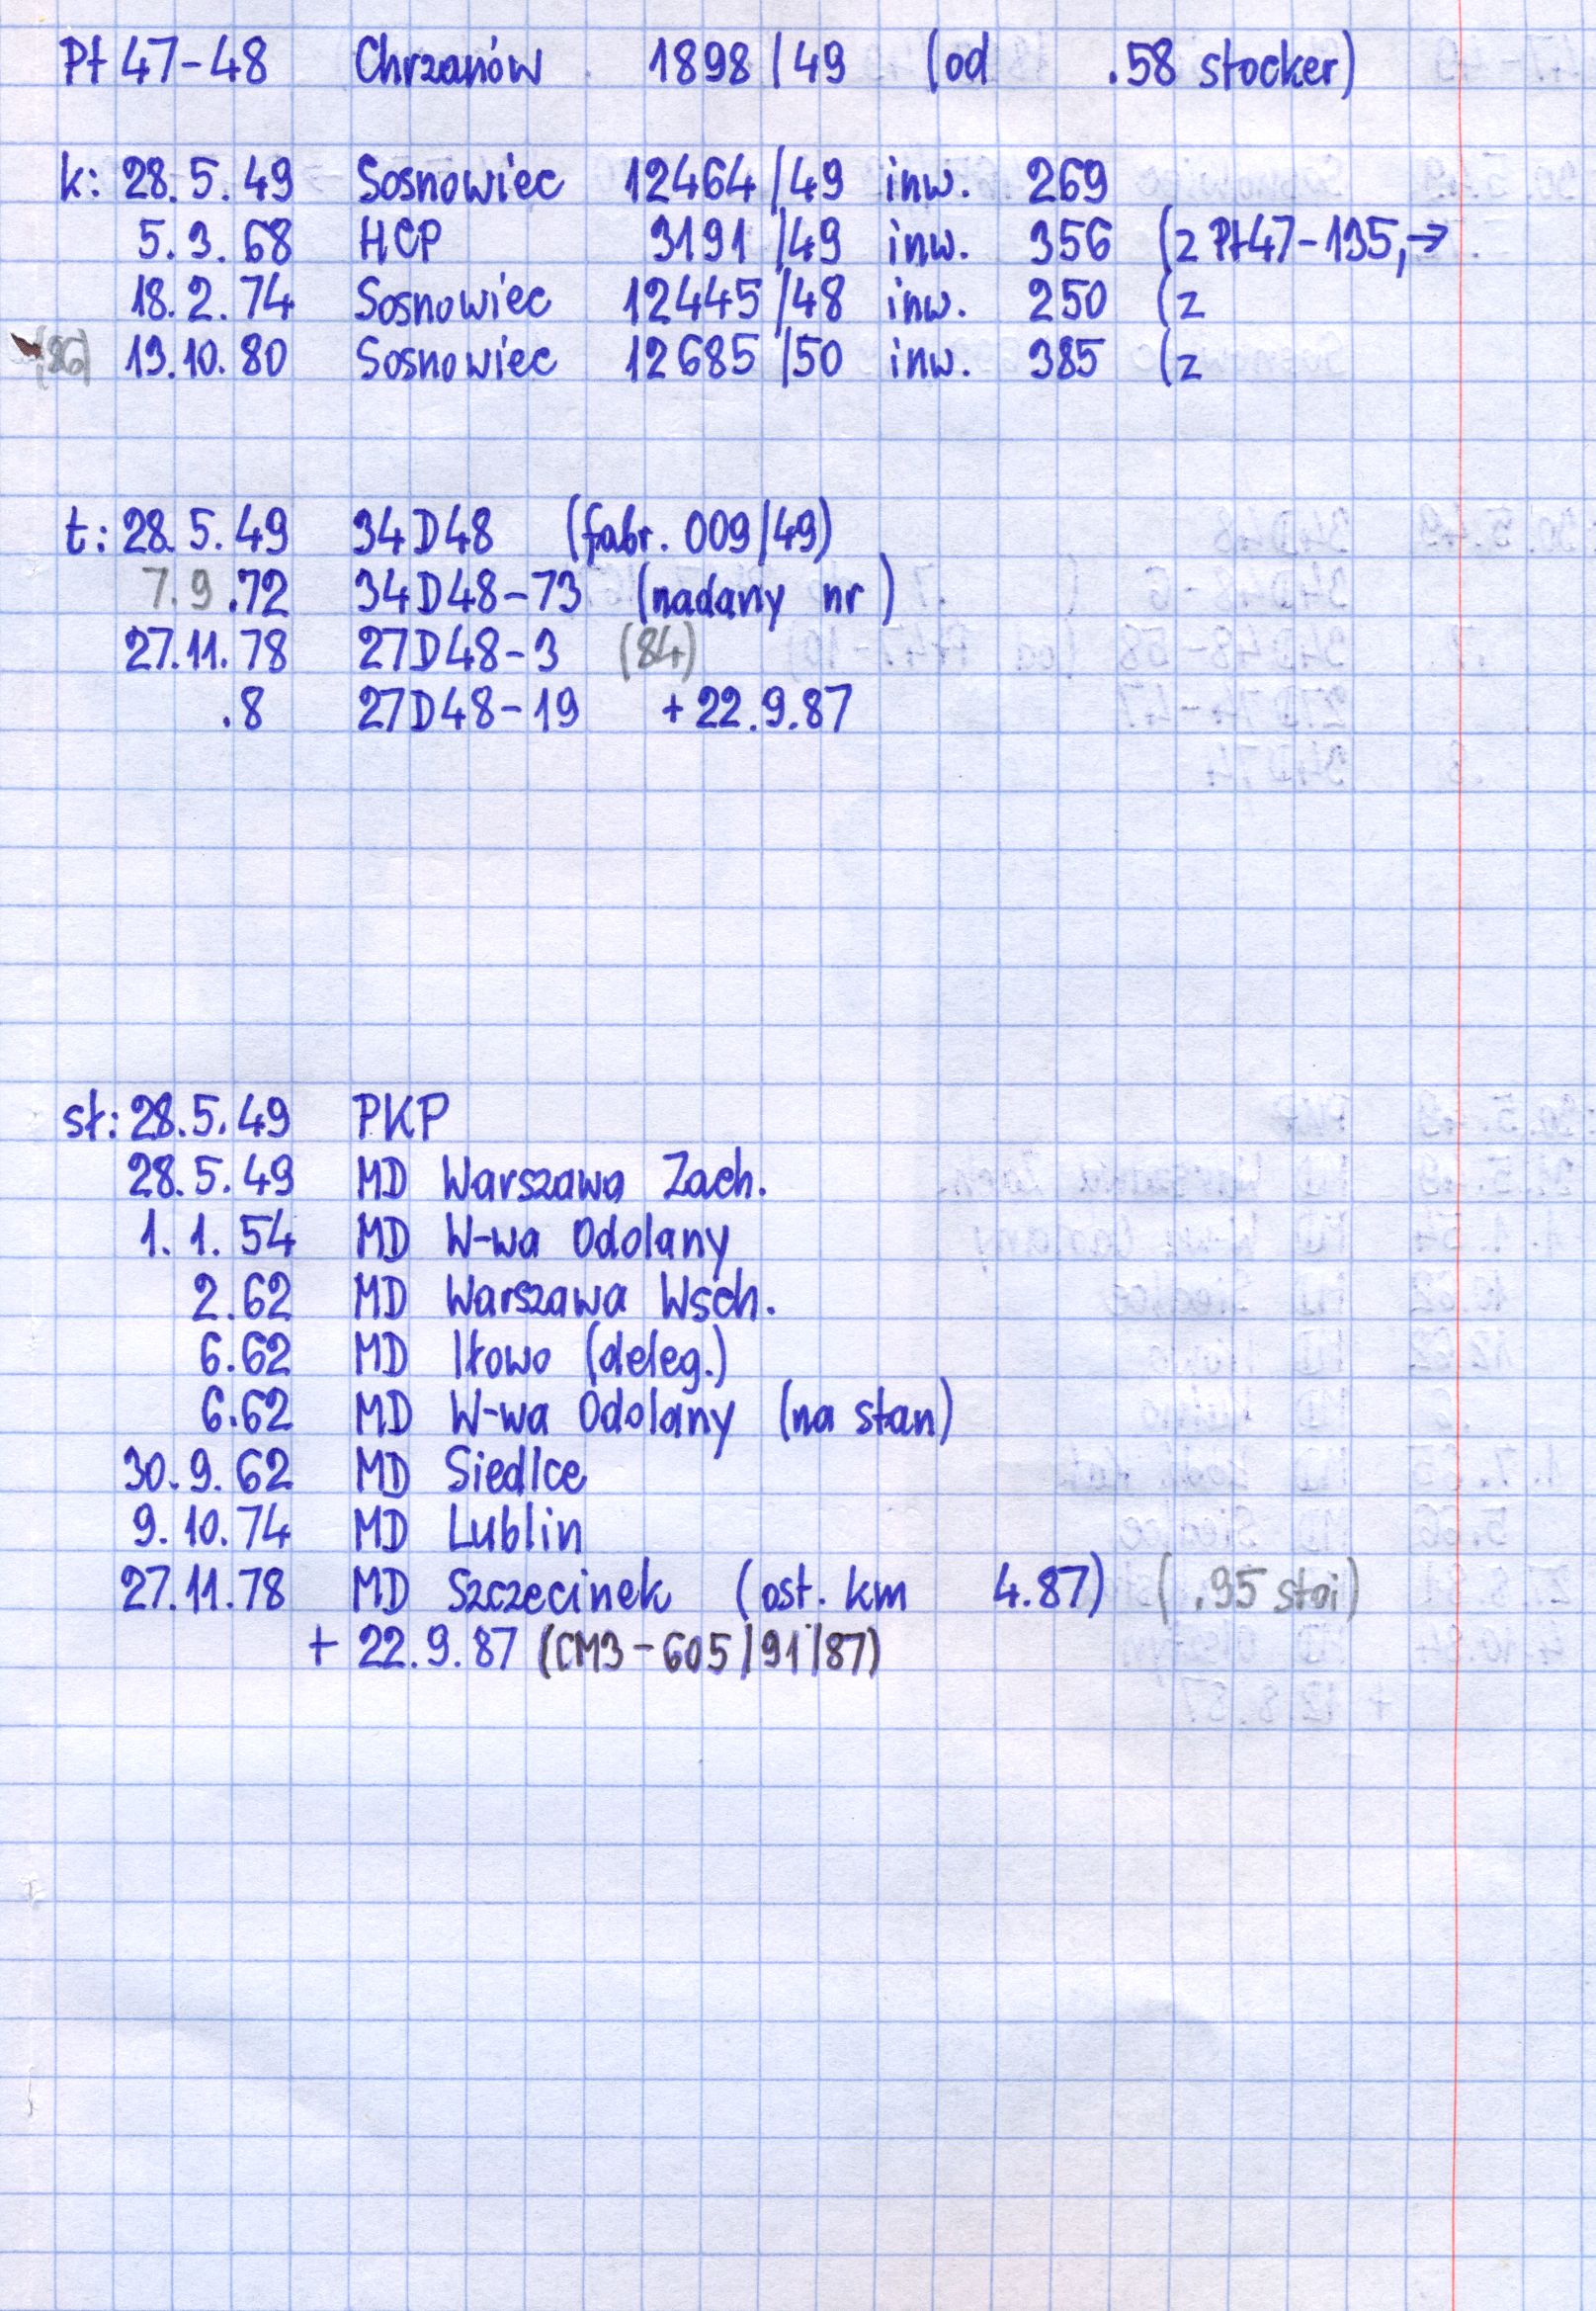 Pt 47-48 Chrzanów 1898/49 (od .58 stocker)
k: 28.5.49 Sosnowiec 12464/49 inw. 269
5.3.68 HCP 3191/49 inw. 356 (z Pt47-135,→
18.2.74 Sosnowiec 12445/48 inw. 250 (z
(86) 19.10.80 Sosnowiec 12685/50 inw. 385 (z
t: 28.5.49 34D48 (fabr. 009/49)
7.9.72 34D48-73 (nadany nr )
27.11.78 27D48-3 (84)
.8 27D48-19 + 22.9.87
sł: 28.5.49 PKP
28.5.49 MD Warszawa Zach.
1.1.54 MD W-wa Odolany
2.62 MD Warszawa Wsch.
6.62 MD Iłowo (deleg.)
6.62 MD W-wa Odolany (na stan)
30.9.62 MD Siedlce
9.10.74 MD Lublin
27.11.78 MD Szczecinek (ost. km 4.87) ( .95 stoi)
+ 22.9.87 (CM3-605/91/87)